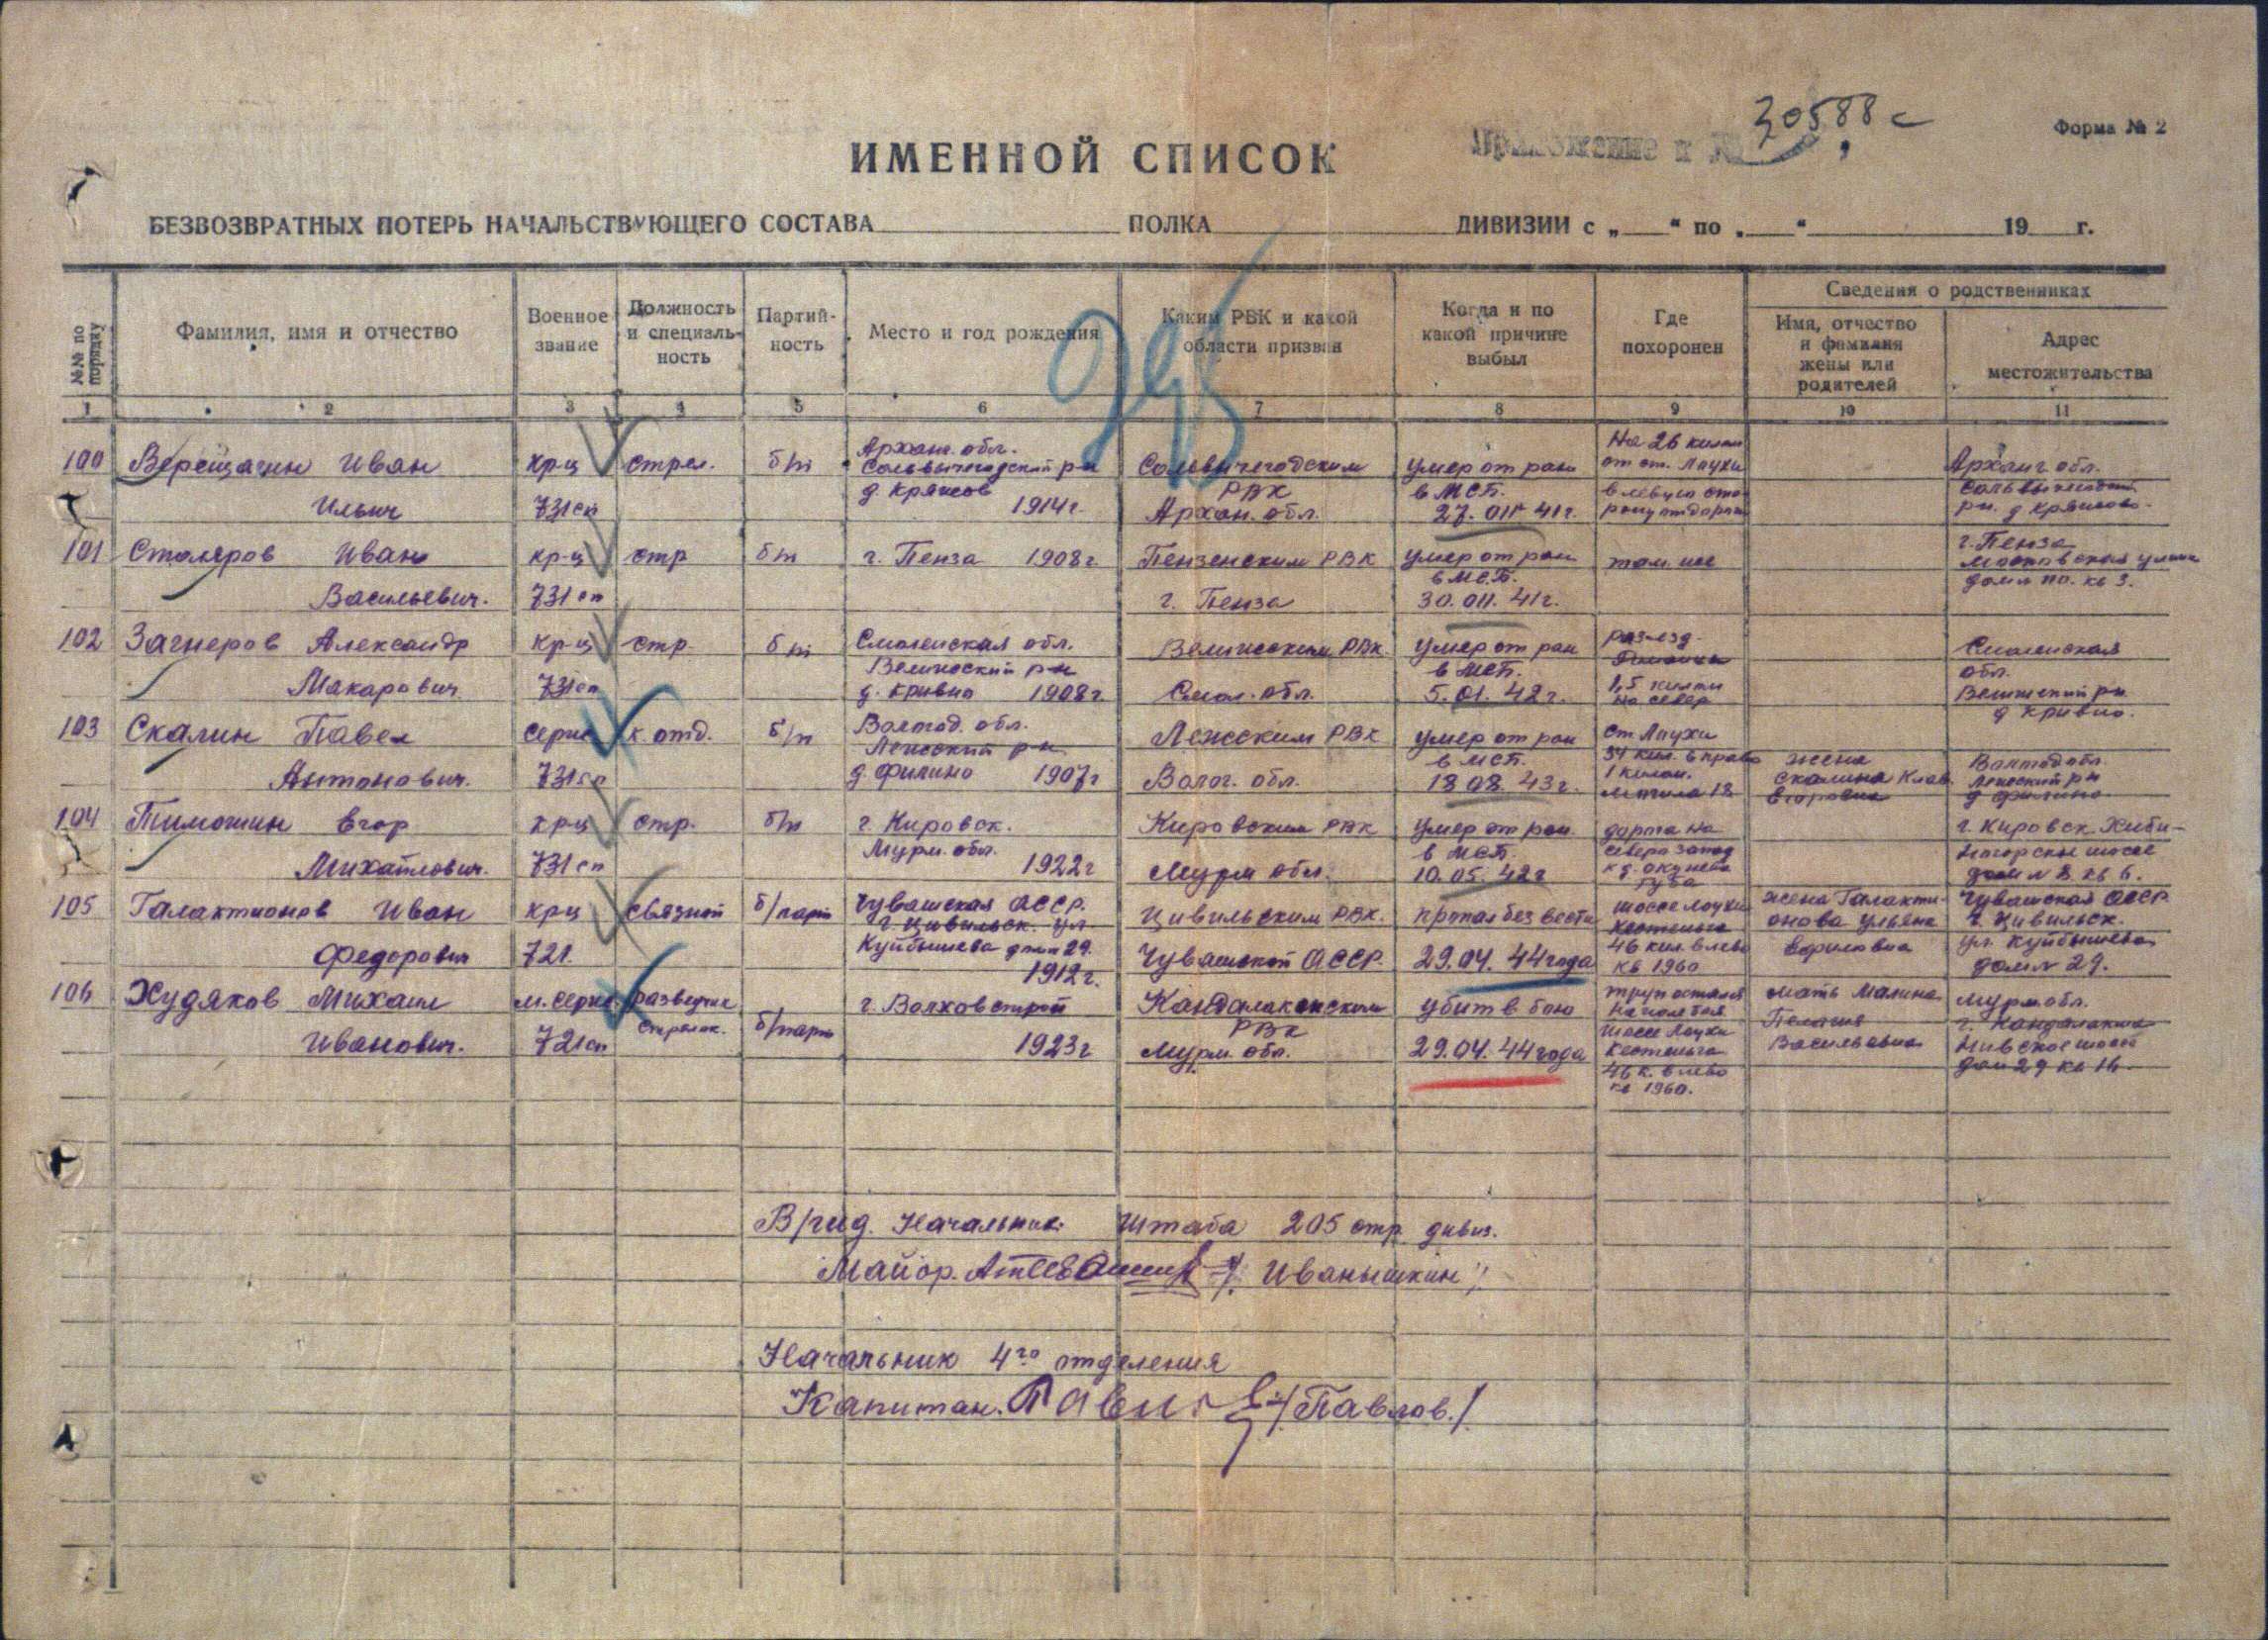 30588 с
Приложение к №
Форма № 2
ИМЕННОЙ СПИСОК
БЕЗВОЗВРАТНЫХ ПОТЕРЬ НАЧАЛЬСТВУЮЩЕГО СОСТАВА ПОЛКА ДИВИЗИИ с „ “ по „ “ 19 г.
№№ по порядку
Фамилия, имя и отчество
Военное звание
Должность и специальность
Партийность
Место и год рождения
Каким РВК и какой области призван
Когда и по какой причине выбыл
Где похоронен
Сведения о родственниках
Имя, отчество и фамилия жены или родителей
Адрес местожительства
1 2 3 4 5 6 7 8 9 10 11
100 Верещагин Иван Ильич
кр-ц 731 сп
стрел.
б/п
Арханг. обл.
Сольвычегодский р-н
1914 г.
Сольвычегодским
РВК
Архан. обл.
умер от ран
в МСБ.
27. 011 41 г.
На 26 килом
от ст. Лоухи
в левую сто-
рону от дороги
Арханг. обл.
101 Столяров Иван Васильевич.
кр-ц 731 сп
стр
б/п
г. Пенза 1908 г
Пензенским РВК
г. Пенза
умер от ран
в МСБ.
30. 011. 41 г.
там же
г. Пенза
Московская улица
102 Загнеров Александр Макарович
кр-ц 731 сп
стр.
б/п
Смоленская обл.
Велижский р-н
д. Кривно 1908 г.
Велижским РВК.
Смол. обл.
умер от ран
в МСБ.
5. 01. 42 г.
разъезд
1,5 килом
на север
Смоленская
обл.
Велижский р-н
д Кривно.
103 Скалин Павел Антонович.
серж 731 сп
к. отд.
б/п
Волгод. обл.
Лежский р-н
д. Филино 1907 г
Лежским РВК
Волог. обл.
умер от ран
в МСБ.
18 08. 43 г.
ст Лоухи
34 кил. вправо
1 килом.
могила 18
жена
Скалина Клав.
Егоровна
Волгод обл.
Лежский р-н
д Филино
104 Тимошин Егор Михайлович.
кр-ц 731 сп
стр.
б/п
г. Кировск.
Мурм. обл.
1922 г
Кировским РВК
Мурм обл.
умер от ран
в МСБ.
10. 05. 42 г
дорога на
северо запад
к д. окунева
губа
г. Кировск Хиби-
ногорское шоссе
дом № 8 кв 6.
105 Галактионов Иван Федорович
кр-ц 721.
связной
б/парт
Чувашская АССР.
г. Цивильск. ул
Куйбышева дом 29.
1912 г.
Цивильским РВК.
Чувашской АССР.
пропал без вести
29. 04. 44 года
шоссе Лоухи
Кестеньга
46 кил. влево
кв 1960
жена Галакти-
онова Ульяна
Чувашская АССР
г. Цивильск.
ул. Куйбышева
дом № 29.
106 Худяков Михаил Иванович.
м. серж. 721 сп
разведчик
стрелок.
б/парт
г. Волховстрой
1923 г
Кандалакшским
РВК
Мурм. обл.
убит в бою
29. 04. 44 года
труп остался
на поле боя
шоссе Лоухи
Кестеньга
46 к. влево
кв 1960.
мать Малина
Пелагия
Васильевна
Мурм обл.
г. Кандалакша
Нивское шоссе
дом 29 кв 16
Врид. Начальник Штаба 205 стр дивиз.
Майор. /Иванышкин/
Начальник 4го отделения
Капитан. /Павлов./